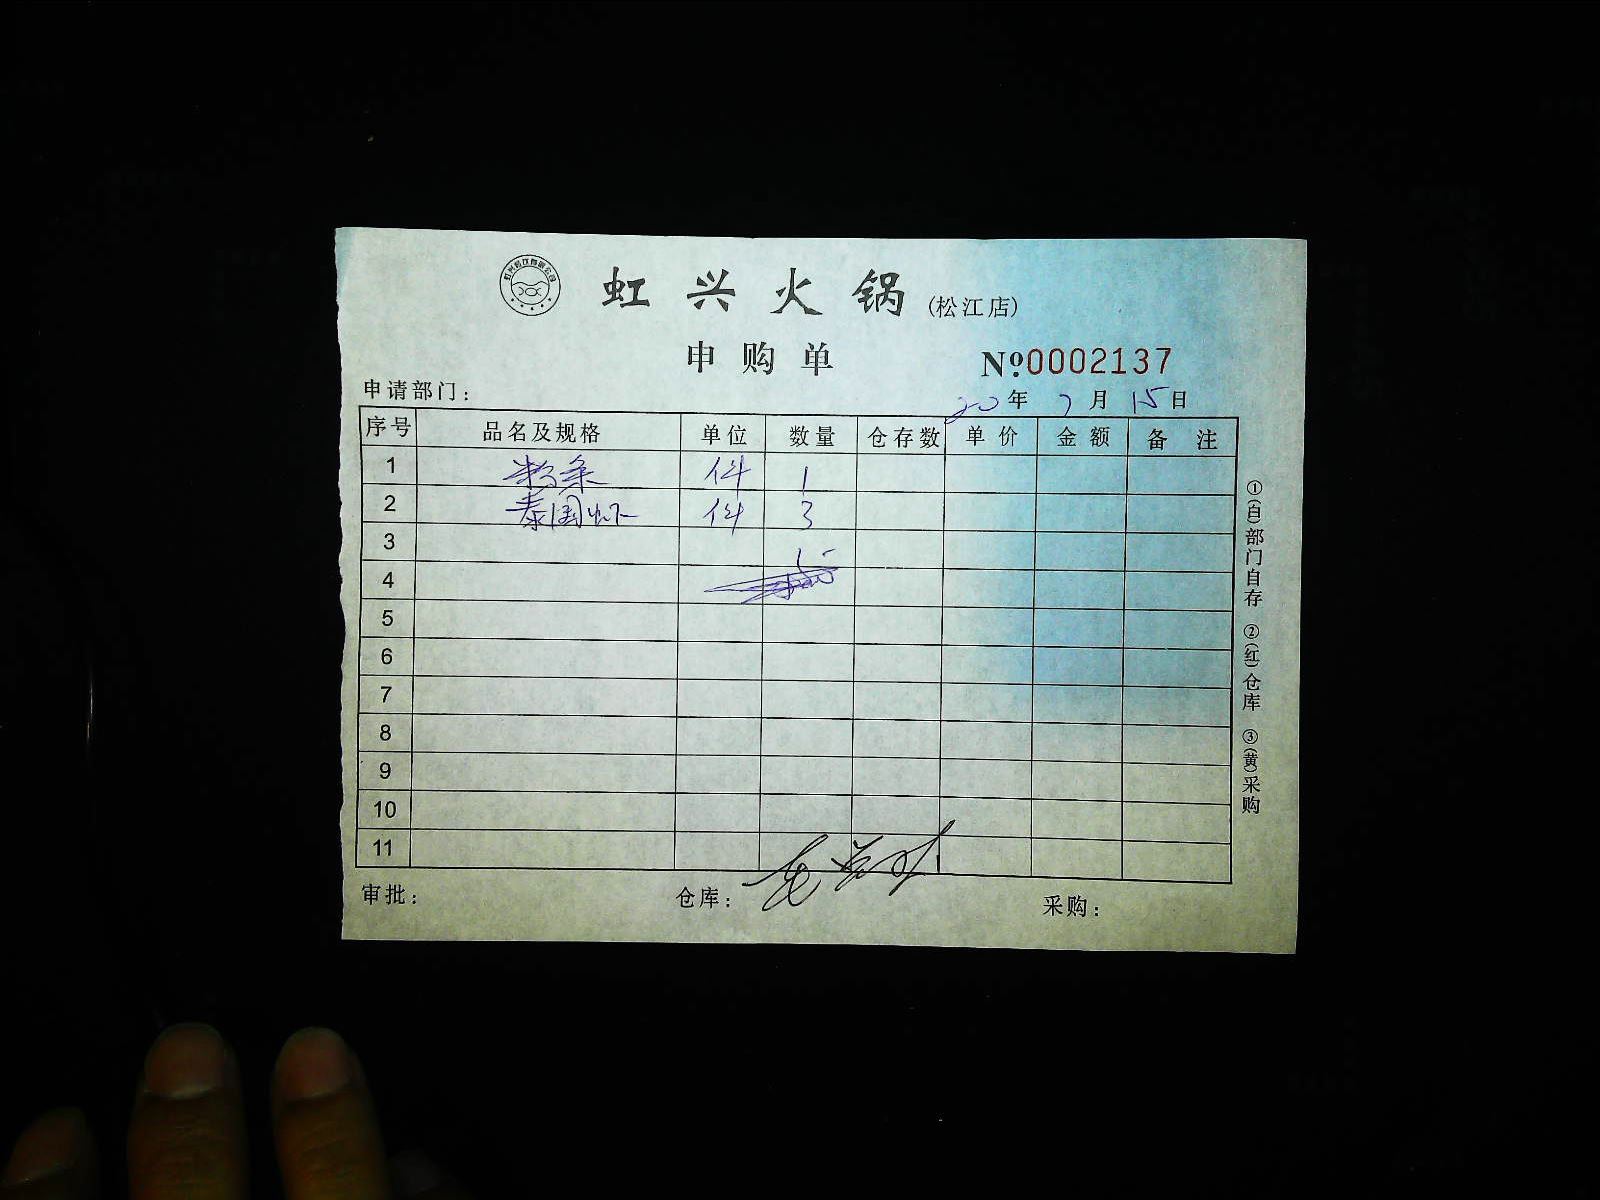 虹兴火锅(松江店)
申购单 Nº0002137
申请部门: 20年7月15日
序号 品名及规格 单位 数量 仓存数 单价 金额 备注
1 粉条 件 1
2 泰国虾 件 3
3
4
5
6
7
8
9
10
11
审批: 仓库: 采购:
①(白)部门自存 ②(红)仓库 ③(黄)采购